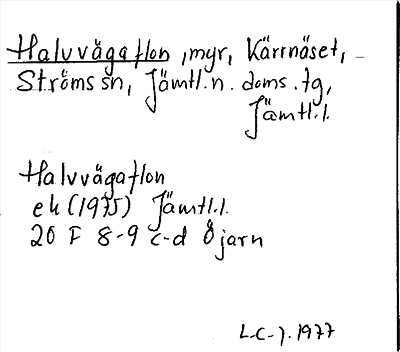 Halvvägaflon, myr, Kärrnäset,
Ströms sn, Jämtl.n. doms.tg,
Jämtl.l.
Halvvägaflon
ek (1975) Jämtl.l.
20 F 8-9 c-d Öjarn
L-C-J. 1977